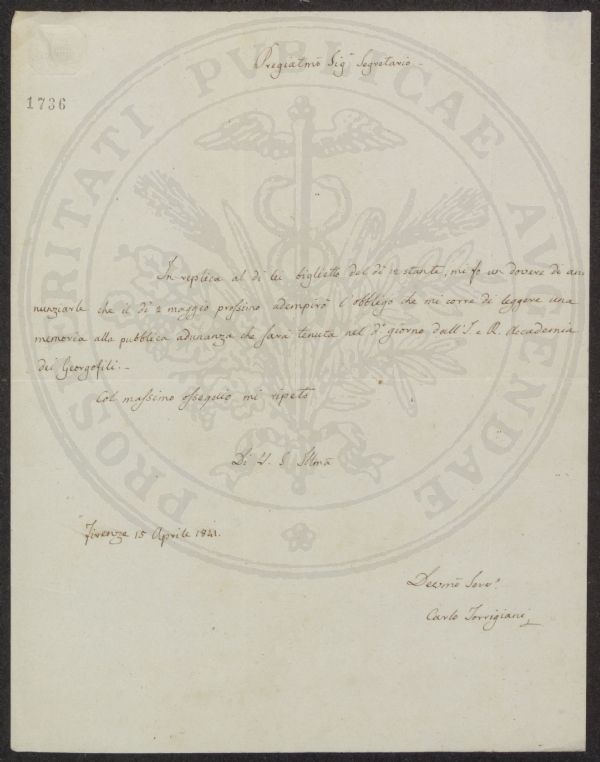 Pregiatmo Sigr Segretario -
1736
PROSPERITATI PUBLICAE AUGENDAE
In replica al di lei biglietto del dì 12 stante, mi fo un dovere di an
nunziarle che il dì 2 maggio prossimo adempirò l'obbligo che mi corre di leggere una
memoria alla pubblica adunanza che sarà tenuta nel dº giorno dall' I. e R. Accademia
dei Georgofili. -
Col massimo ossequio mi ripeto
Di V. S. Illma
Firenze 15 Aprile 1841.
Devmo Servo
Carlo Torrigiani